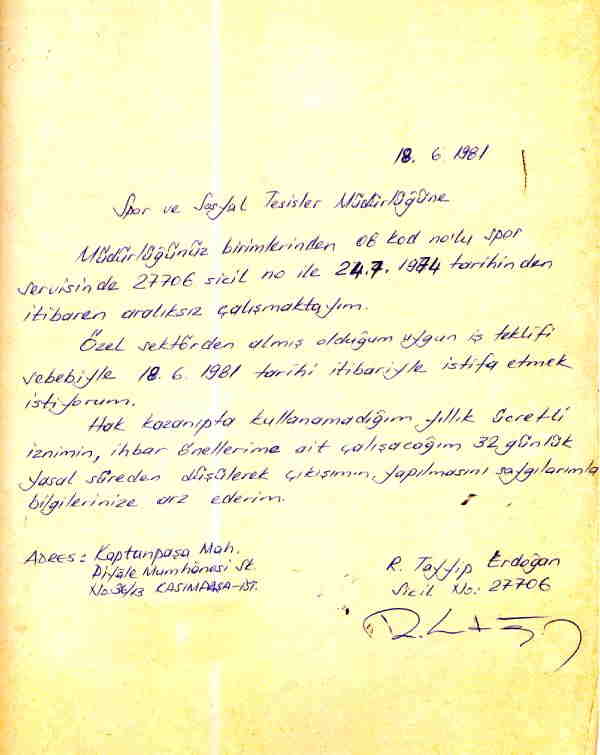 18. 6. 1981
Spor ve Sosyal Tesisler Müdürlüğüne
Müdürlüğünüz birimlerinden 06 kod no'lu spor
servisinde 27706 sicil no ile 24.7.1974 tarihinden
itibaren aralıksız çalışmaktayım.
Özel sektörden almış olduğum uygun iş teklifi
sebebiyle 18. 6. 1981 tarihi itibariyle istifa etmek
istiyorum.
Hak kazanıpta kullanamadığım yıllık ücretli
iznimin, ihbar önellerime ait çalışacağım 32 günlük
yasal süreden düşülerek çıkışımın yapılmasını saygılarımla
bilgilerinize arz ederim.
ADRES: Kaptanpaşa Mah.
Piyale Mumhanesi Sk.
No: 36/13 KASIMPAŞA-İST.
R. Tayyip Erdoğan
Sicil No: 27706